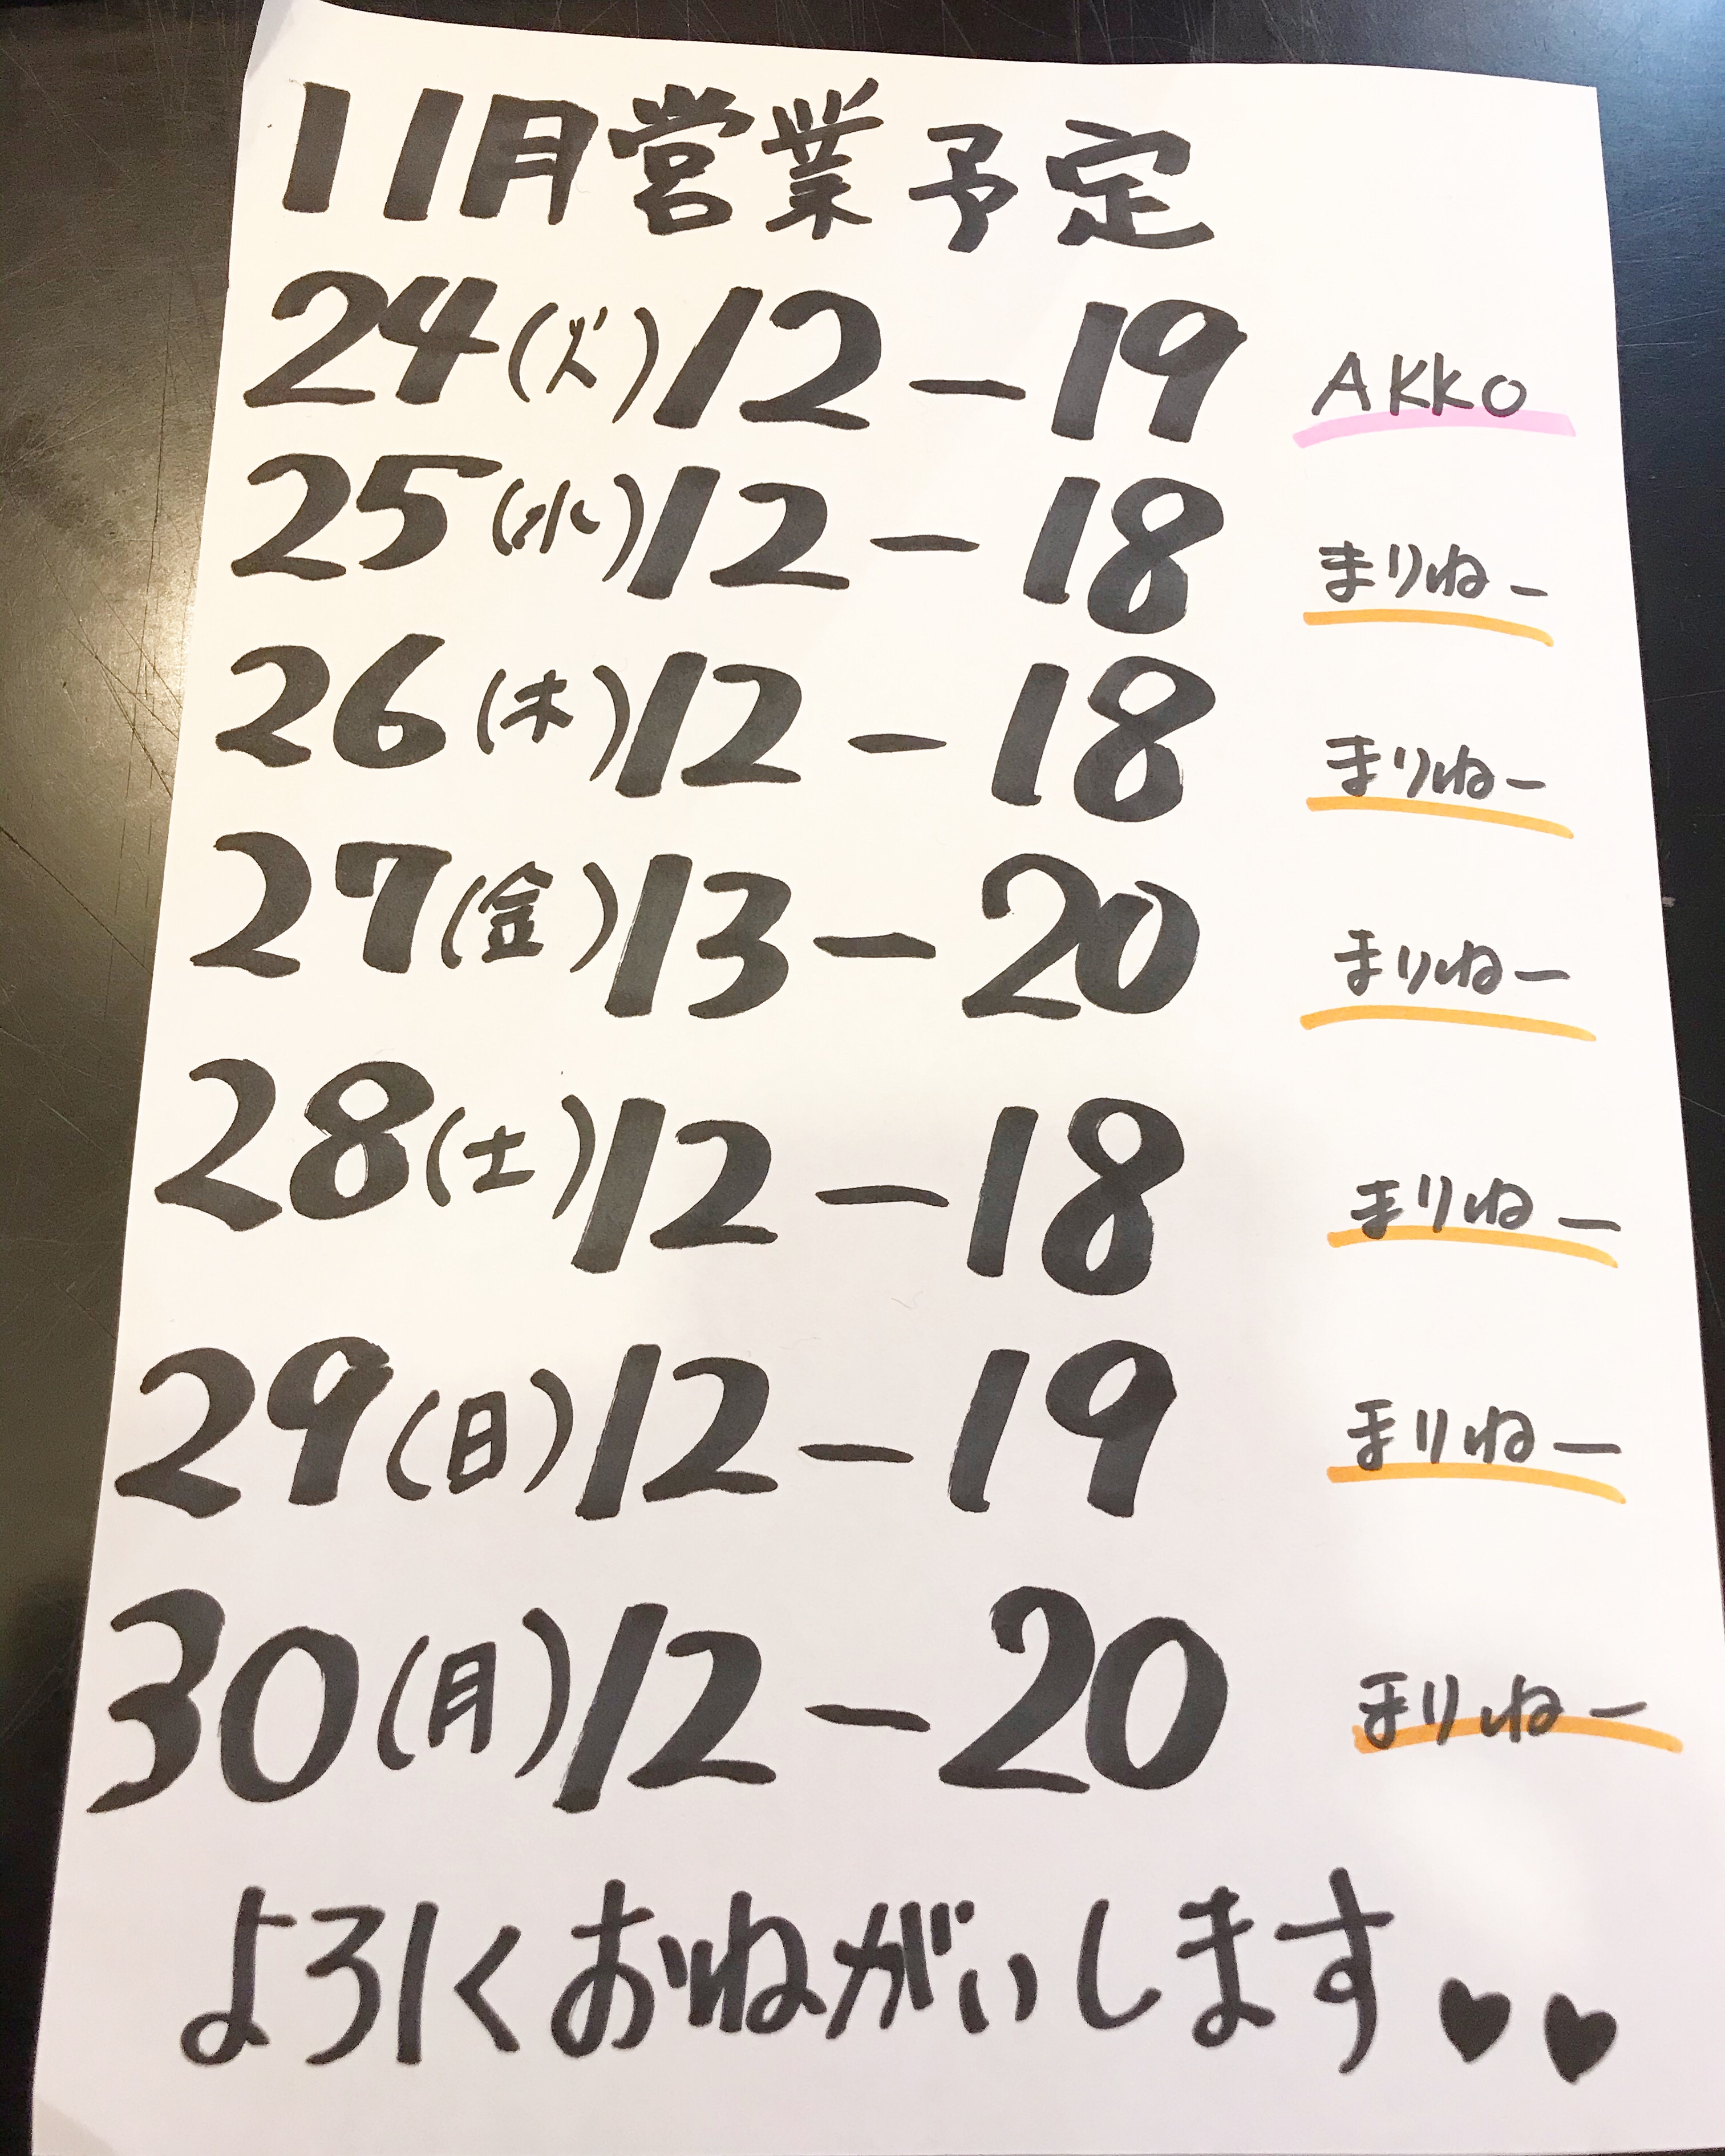 11月営業予定
24(火)12－19 AKKO
25(水)12－18 まりねー
26(木)12－18 まりねー
27(金)13－20 まりねー
28(土)12－18 まりねー
29(日)12－19 まりねー
30(月)12－20 まりねー
よろしくおねがいします♥♥